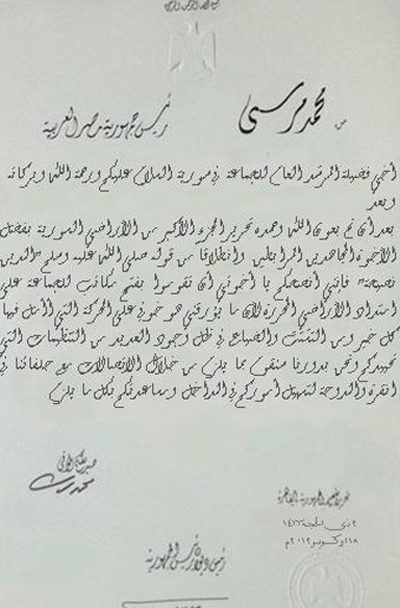 من
محمد مرسى
رئيس جمهورية مصر العربية
أخي فضيلة المرشد العام للجماعة في سورية السلام عليكم ورحمة الله وبركاته
وبعد
بعد أن تم بعون الله وحمده تحرير الجزء الأكبر من الأراضي السورية بفضل
الأخوة المجاهدين المرابطين وانطلاقا من قوله صلى الله عليه وسلم "الدين
نصيحة" فإنني أنصحكم يا أخوتي أن تقوموا بفتح مكاتب للجماعة على
امتداد الأراضي المحررة لأن ما يؤرقني هو خوفي على الحركة التي الأمل فيها
كل خير من التشتت والضياع في ظل وجود العديد من التنظيمات التي
تهددكم ونحن بدورنا سنقوم بما يلزم من خلال الاتصالات مع حلفائنا في
انقرة والدوحة لتسهيل أموركم في الداخل وساعدتكم بكل ما يلزم
محمد مرسى
تحريرا بقصر الجمهورية بالقاهرة
٢ ذى الحجة ١٤٣٣هـ
١٨ اكتوبر ٢٠١٢م
رئيس ديوان رئيس الجمهورية